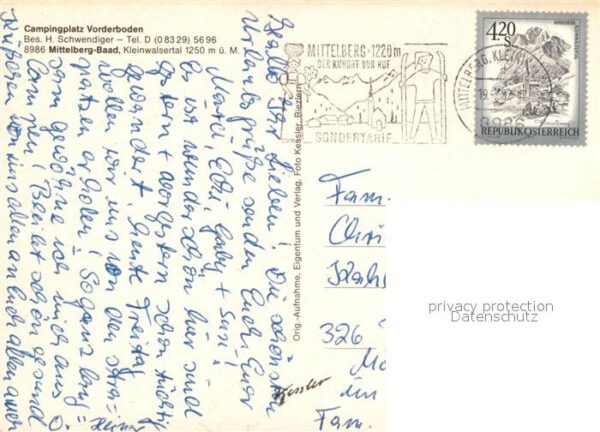 Campingplatz Vorderboden
Bes. H. Schwendiger – Tel. D (0 83 29) 56 96
8986 Mittelberg-Baad, Kleinwalsertal 1250 m ü. M.
MITTELBERG · 1220m
DER KURORT VON RUF
SONDERTARIF
MITTELBERG, KLEIN
8986
4.20
S
REPUBLIK ÖSTERREICH
Orig.-Aufnahme, Eigentum und Verlag, Foto Kessler, Riezlern
Hallo Ihr Lieben! Die schönsten
Urlaubsgrüße senden Euch Euer
Edi, Gaby + Susi!
Es ist wunderschön hier und
gestern + vorgestern schon tüchtig
gewandert, heute Freitag
wollen wir uns von den Stra=
pazen erholen! So ganz lang=
sam gewöhne ich mich ans
Campen! Bleibt schön gesund
Grüßen von uns allen an Euch allen
Kessler
Fam.
Chri
326
Fam.
privacy protection
Datenschutz